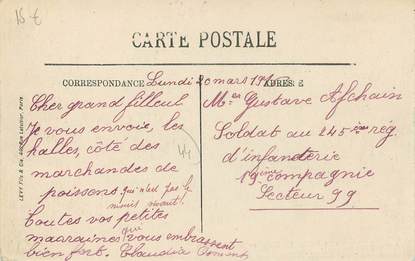 15 €
CARTE POSTALE
CORRESPONDANCE
ADRESSE
Lundi 20 mars
Cher grand filleul
Je vous envoie, les
halles, côté des
marchandes de
poissons qui n'est pas le
moins vivant!
Toutes vos petites
marraines qui vous embrassent
bien fort. Claudia
44
Mer Gustave Afchain
Soldat au 245ième rég.
d'infanterie
19ième compagnie
Secteur 99
LEVY Fils & Cie, Paris